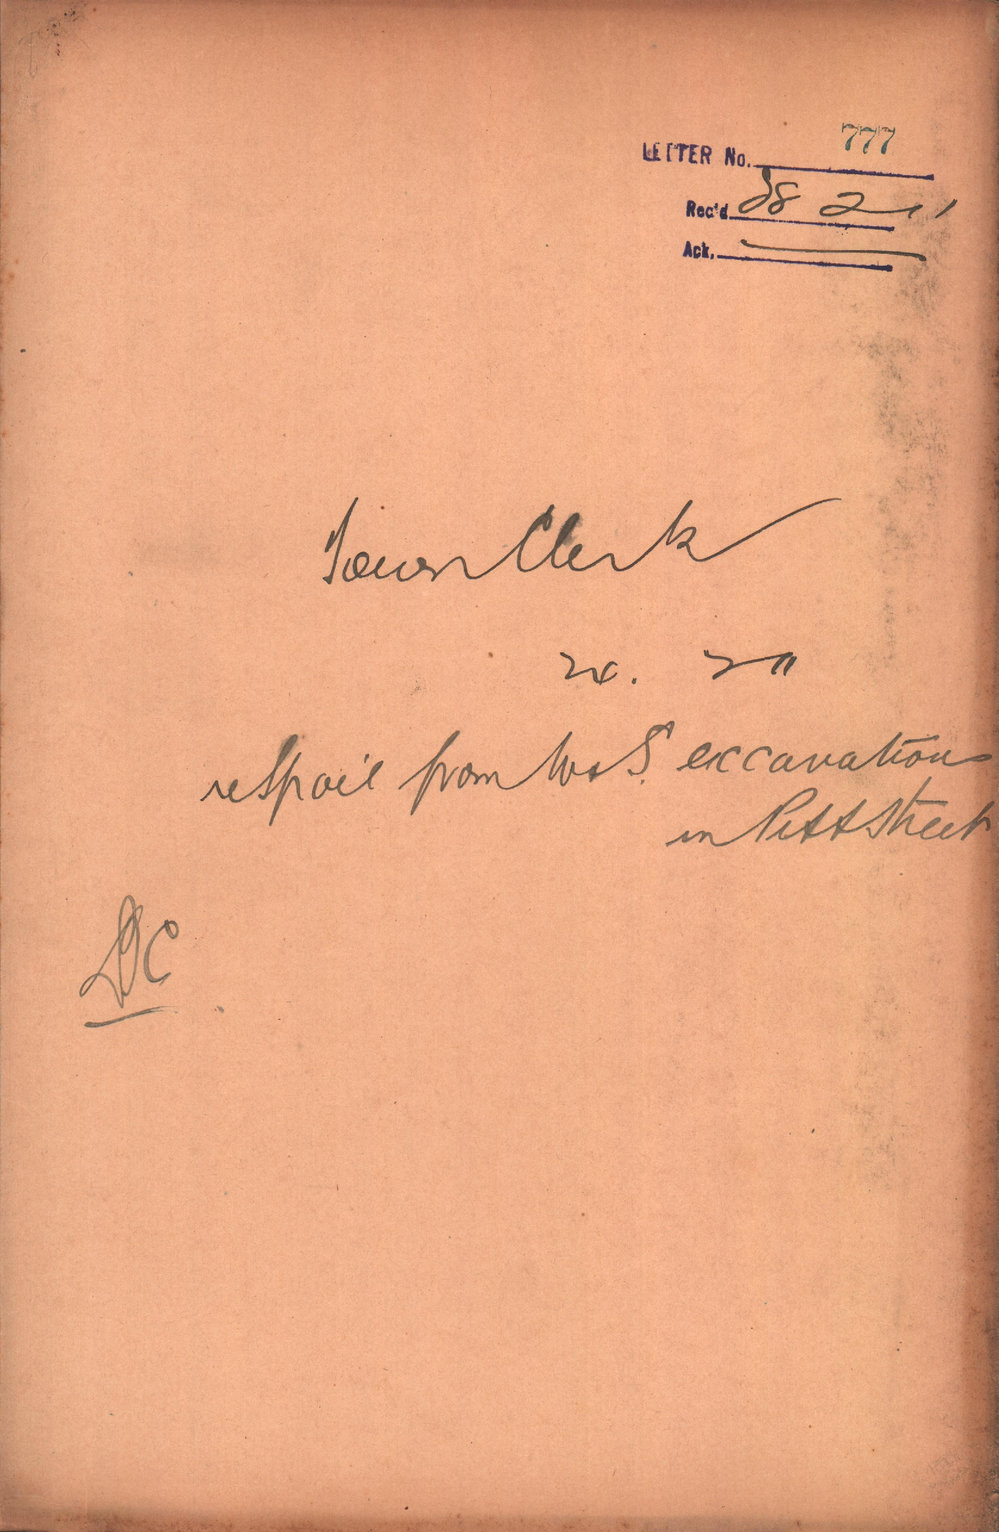 LETTER No. 777
Rec'd 28 2 11
Ack.
Town Clerk
24. 2 11
re Spoil from W & S. excavations
in Pitt Street
DC